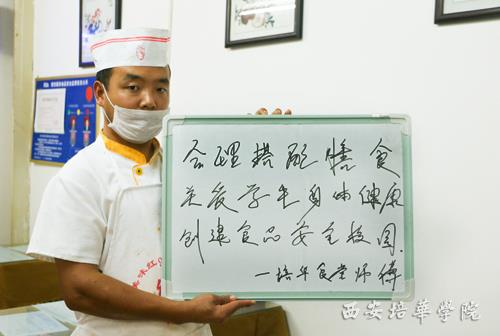 合理搭配膳食
关爱学生身体健康
创建食品安全校园.
—培华食堂师傅
西安培華學院